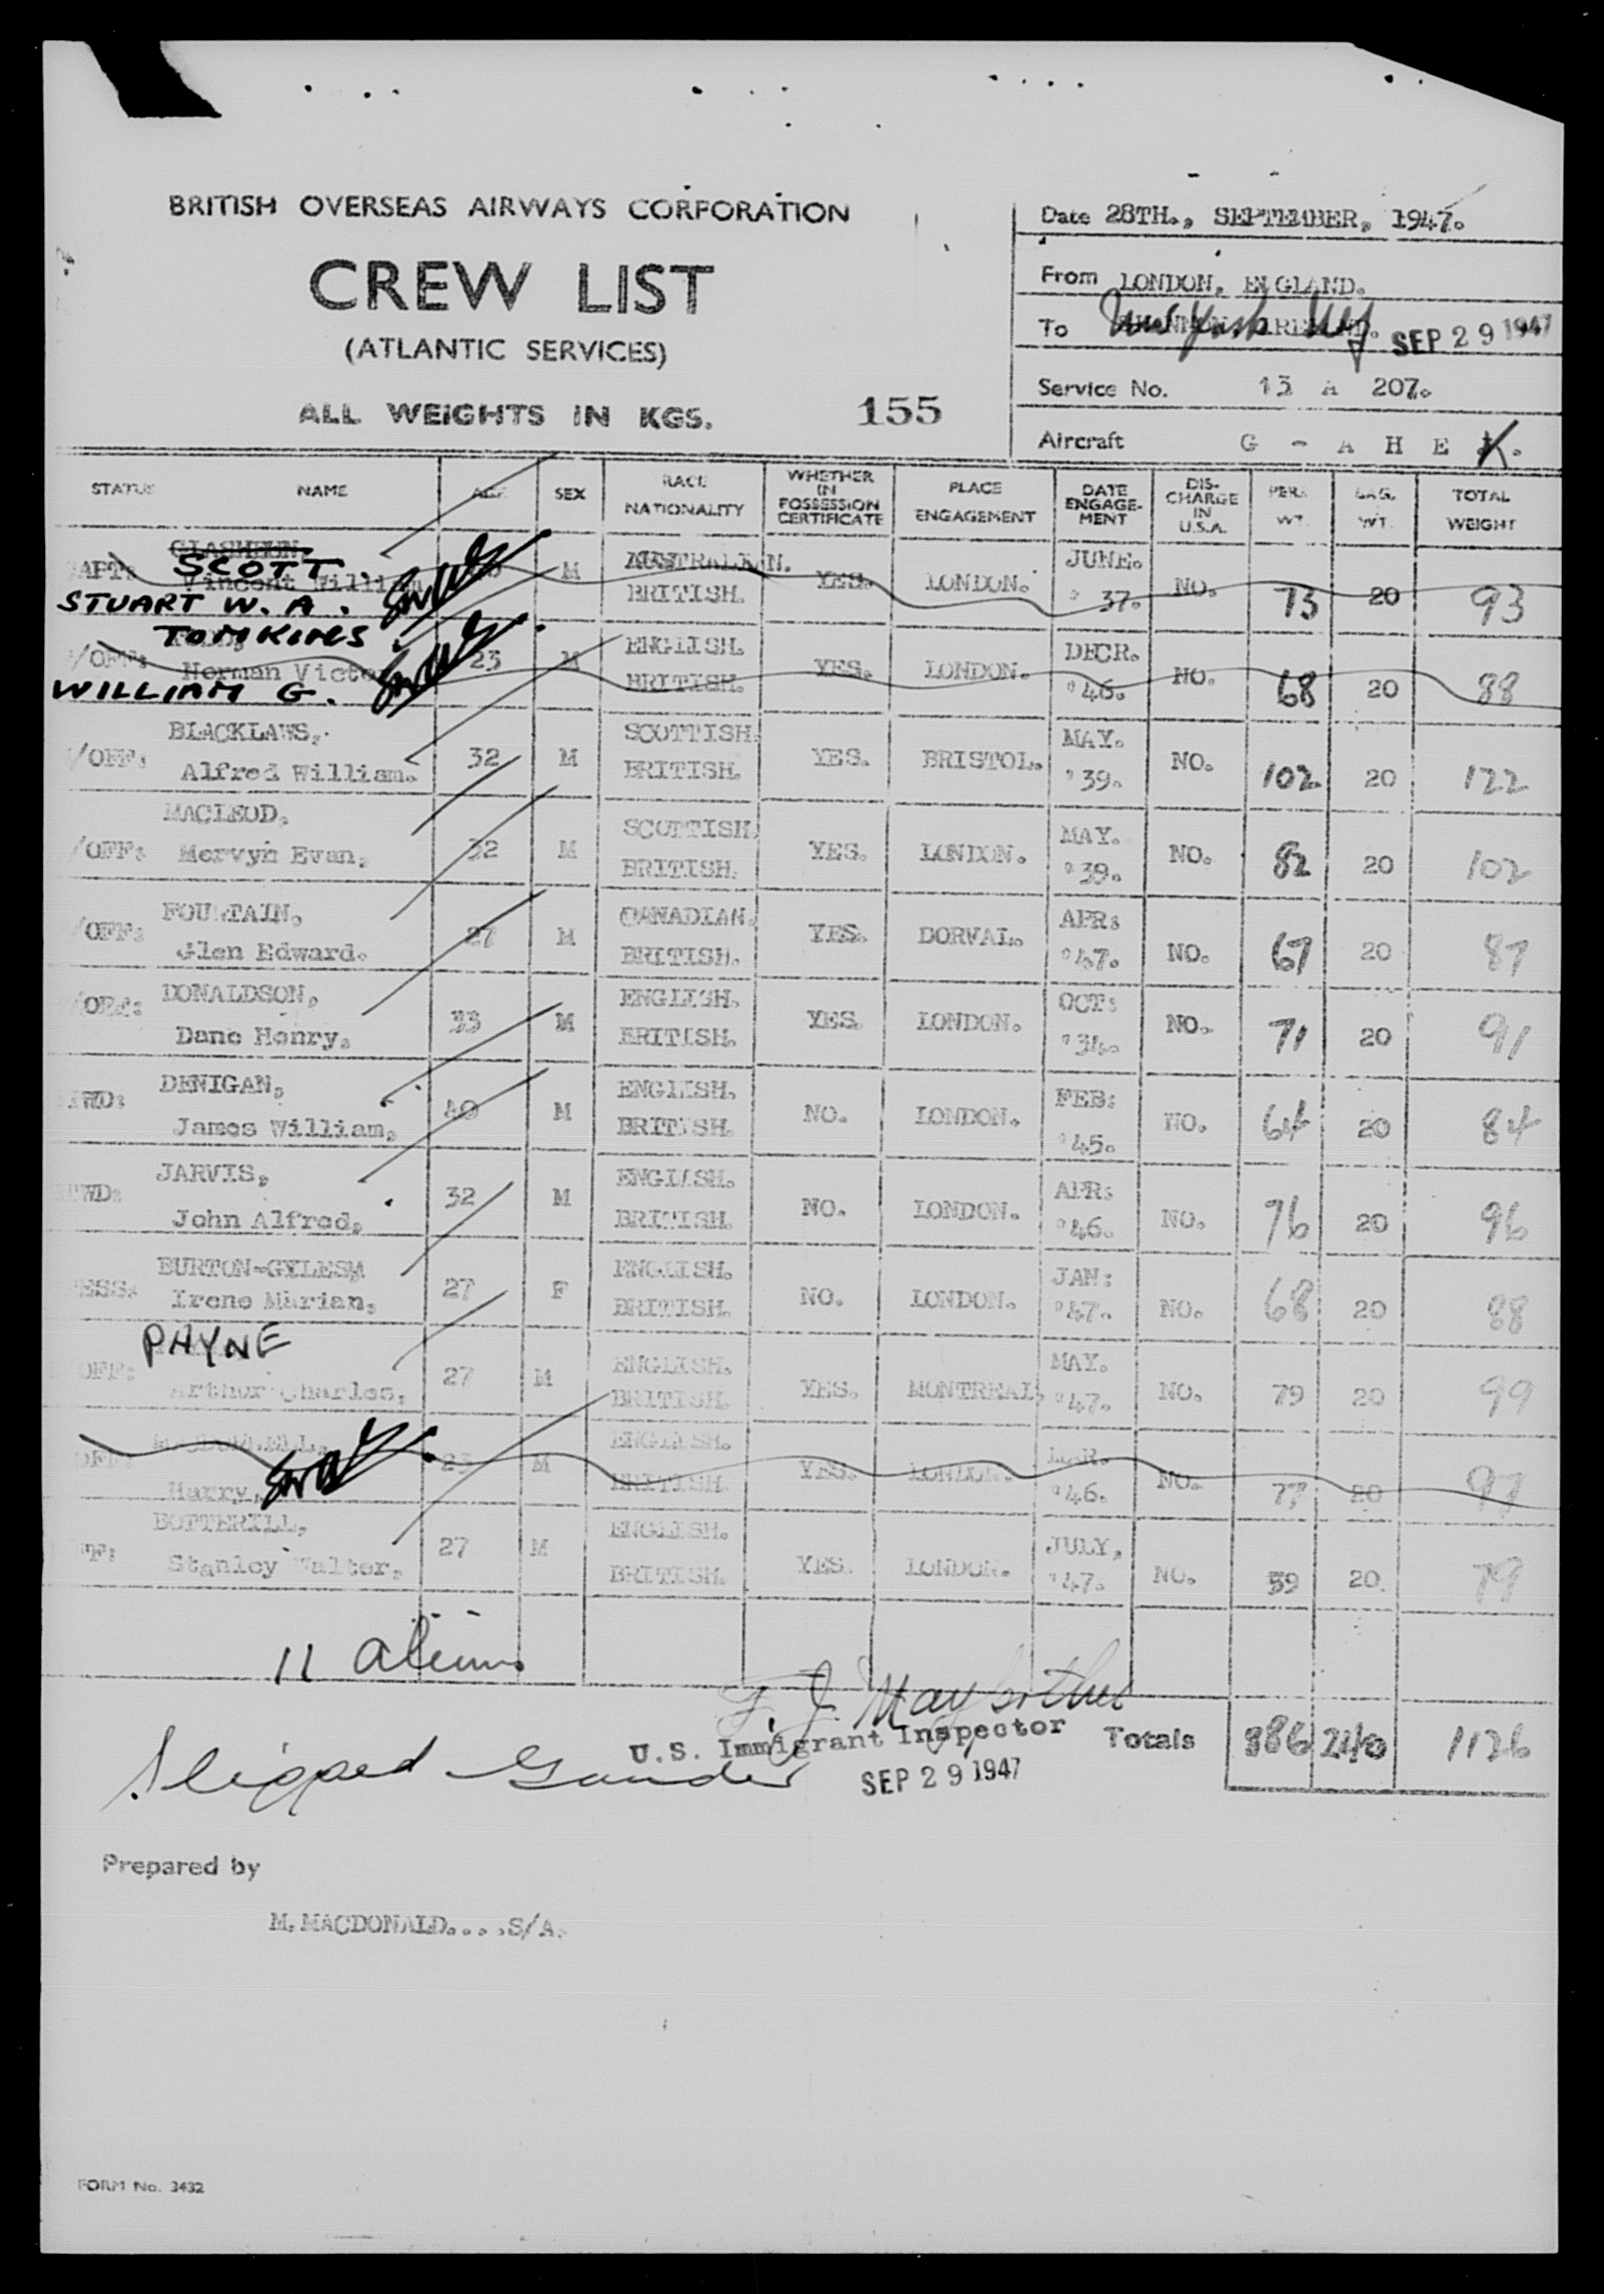 BRITISH OVERSEAS AIRWAYS CORPORATION
CREW LIST
(ATLANTIC SERVICES)
ALL WEIGHTS IN KGS. 155
Date 28TH., SEPTEMBER, 1947.
From LONDON, ENGLAND.
To New York NY SEP 29 1947
Service No. 13 A 207.
Aircraft G - A H E K.
STATUS NAME AGE SEX RACE NATIONALITY WHETHER IN POSSESSION CERTIFICATE PLACE ENGAGEMENT DATE ENGAGE-MENT DIS-CHARGE IN U.S.A. PERS. WT. BAG. WT. TOTAL WEIGHT
SCOTT AUSTRALIAN. JUNE.
CAPT: Vincent William M BRITISH. YES. LONDON. '37. NO. 73 20 93
STUART W. A.
TOMKINS ENGLISH. DECR.
/OFF: Norman Victor 23 M BRITISH. YES. LONDON. '46. NO. 68 20 88
WILLIAM G.
BLACKLAWS, SCOTTISH. MAY.
/OFF: Alfred William. 32 M BRITISH. YES. BRISTOL. '39. NO. 102 20 122
MACLEOD, SCOTTISH. MAY.
/OFF: Mervyn Evan, 32 M BRITISH. YES. LONDON. '39. NO. 82 20 102
FOUNTAIN, CANADIAN. APR:
/OFF: Glen Edward. 27 M BRITISH. YES. DORVAL. '47. NO. 67 20 87
DONALDSON, ENGLISH. OCT:
/OFF: Dane Henry, 33 M BRITISH. YES. LONDON. '34. NO. 71 20 91
DENIGAN, ENGLISH. FEB:
TWD: James William, 40 M BRITISH. NO. LONDON. '45. NO. 64 20 84
JARVIS, ENGLISH. APR:
TWD: John Alfred, 32 M BRITISH. NO. LONDON. '46. NO. 76 20 96
BURTON-GYLESM ENGLISH. JAN:
ESS: Irene Marian, 27 F BRITISH. NO. LONDON. '47. NO. 68 20 88
PHYNE ENGLISH. MAY.
OFF: Arthur Charles, 27 M BRITISH. YES. MONTREAL, '47. NO. 79 20 99
ENGLISH. MAR.
OFF: Harry, 23 M BRITISH. YES. LONDON. '46. NO. 77 20 97
BOTTERILL, ENGLISH. JULY,
FF: Stanley Walter, 27 M BRITISH. YES. LONDON. '47. NO. 59 20 79
11 aliens
F. J. Maybithel
U.S. Immigrant Inspector Totals 886 240 1126
Slipped Gander SEP 29 1947
Prepared by
M. MACDONALD....S/A.
FORM No. 3432